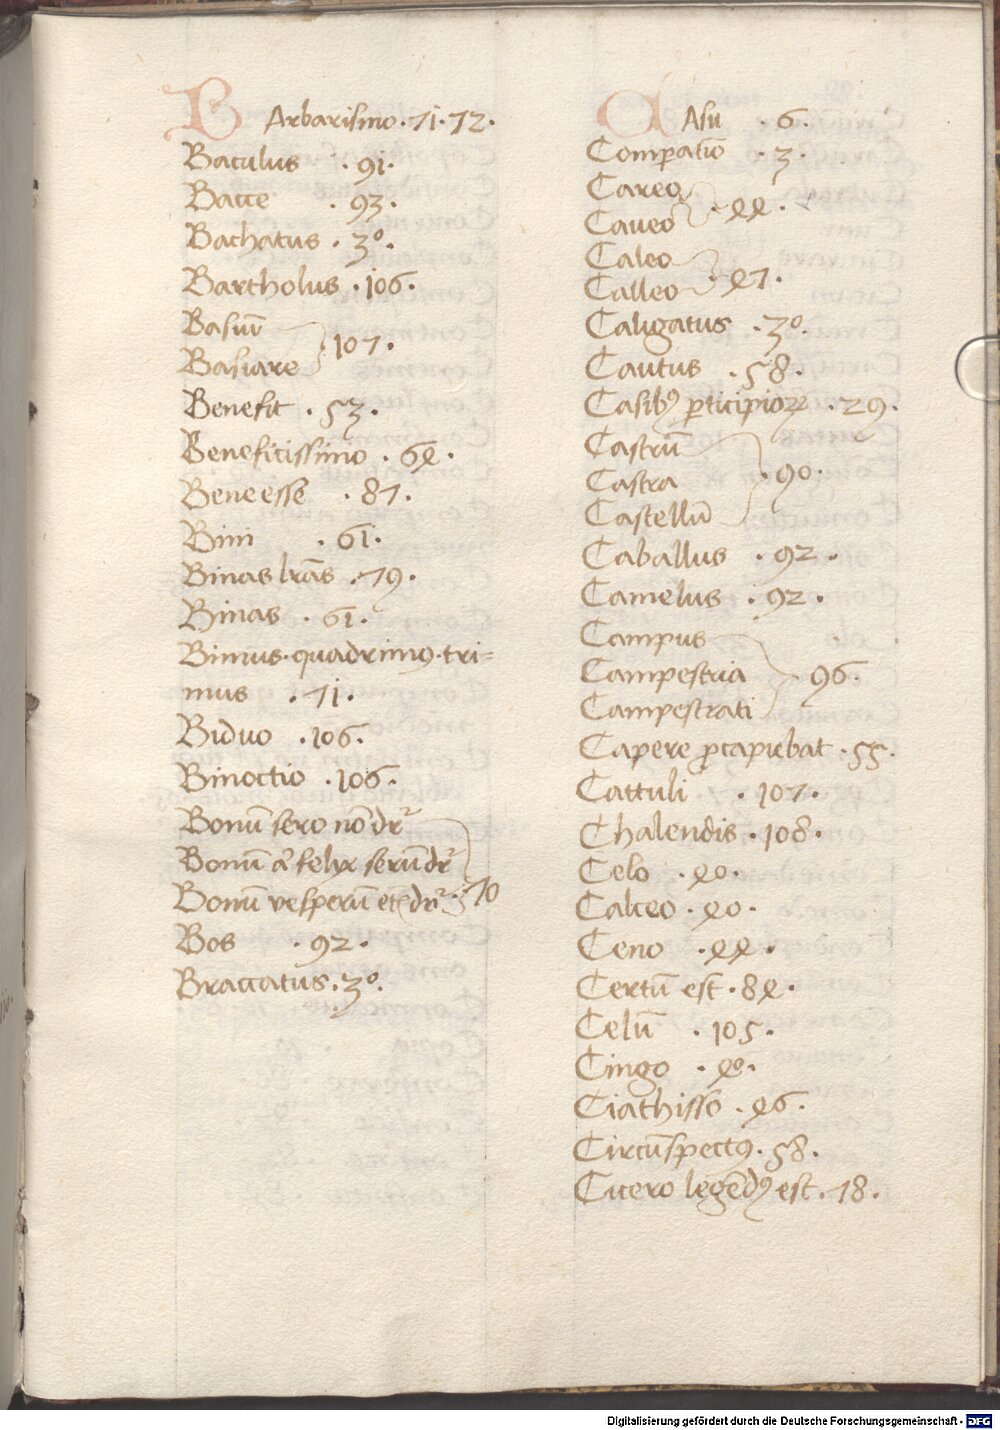 BArbarismo · 71 · 72 ·
Baculus · 91 ·
Bacce · 93 ·
Bachatus · 30 ·
Bartholus · 106 ·
Basiū
Basiare 107 ·
Benefit · 53 ·
Beneficissimo · 64 ·
Bene esse · 87 ·
Bini · 61 ·
Binas lr̄as · 79 ·
Binas · 61 ·
Bimus · quadrimꝰ · tri=
mus · 71 ·
Biduo · 106 ·
Binoctio · 106 ·
Bonū sero nō dr̄
Bonū a felix serū dr̄
Bonū vesperū etc̄ dr̄ · 70
Bos · 92 ·
Braccatus · 30 ·
CAsu · 6 ·
Comparatio · 3 ·
Careo
Caueo · 44 ·
Caleo
Calleo · 47 ·
Caligatus · 30 ·
Cautus · 58 ·
Casibꝰ ꝑticipioꝝ · 29 ·
Castrū
Castra · 90 ·
Castellū
Caballus · 92 ·
Camelus · 92 ·
Campus
Campestria · 96 ·
Campestrati
Capere ꝓ capiebat · 55 ·
Cattuli · 107 ·
Chalendis · 108 ·
Celo · 40 ·
Calceo · 40 ·
Ceno · 44 ·
Certū est · 84 ·
Celū · 105 ·
Cingo · 40 ·
Ciathisso · 46 ·
Circūspectꝰ · 58 ·
Cicero legēdꝰ est · 18 ·
Digitalisierung gefördert durch die Deutsche Forschungsgemeinschaft - DFG